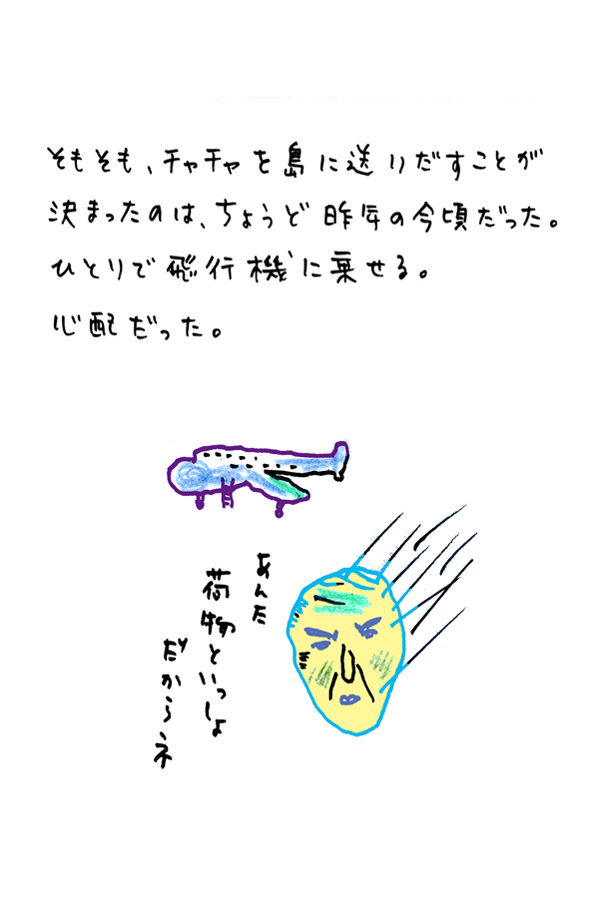 そもそも、チャチャを島に送りだすことが
決まったのは、ちょうど昨年の今頃だった。
ひとりで飛行機に乗せる。
心配だった。
あんた
荷物といっしょ
だからネ